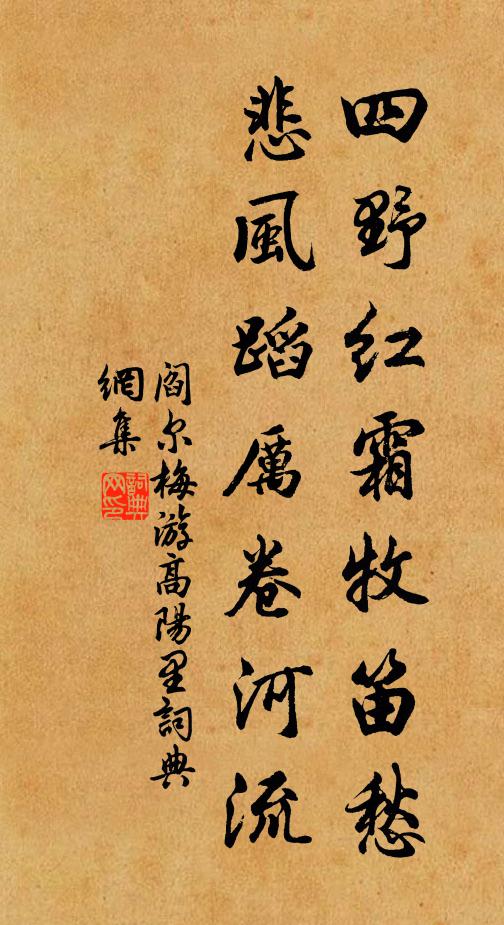 四野红霜牧笛愁
悲風蹈厲卷河流
阎尔梅游高陽里詞典
網集
詞典
网印